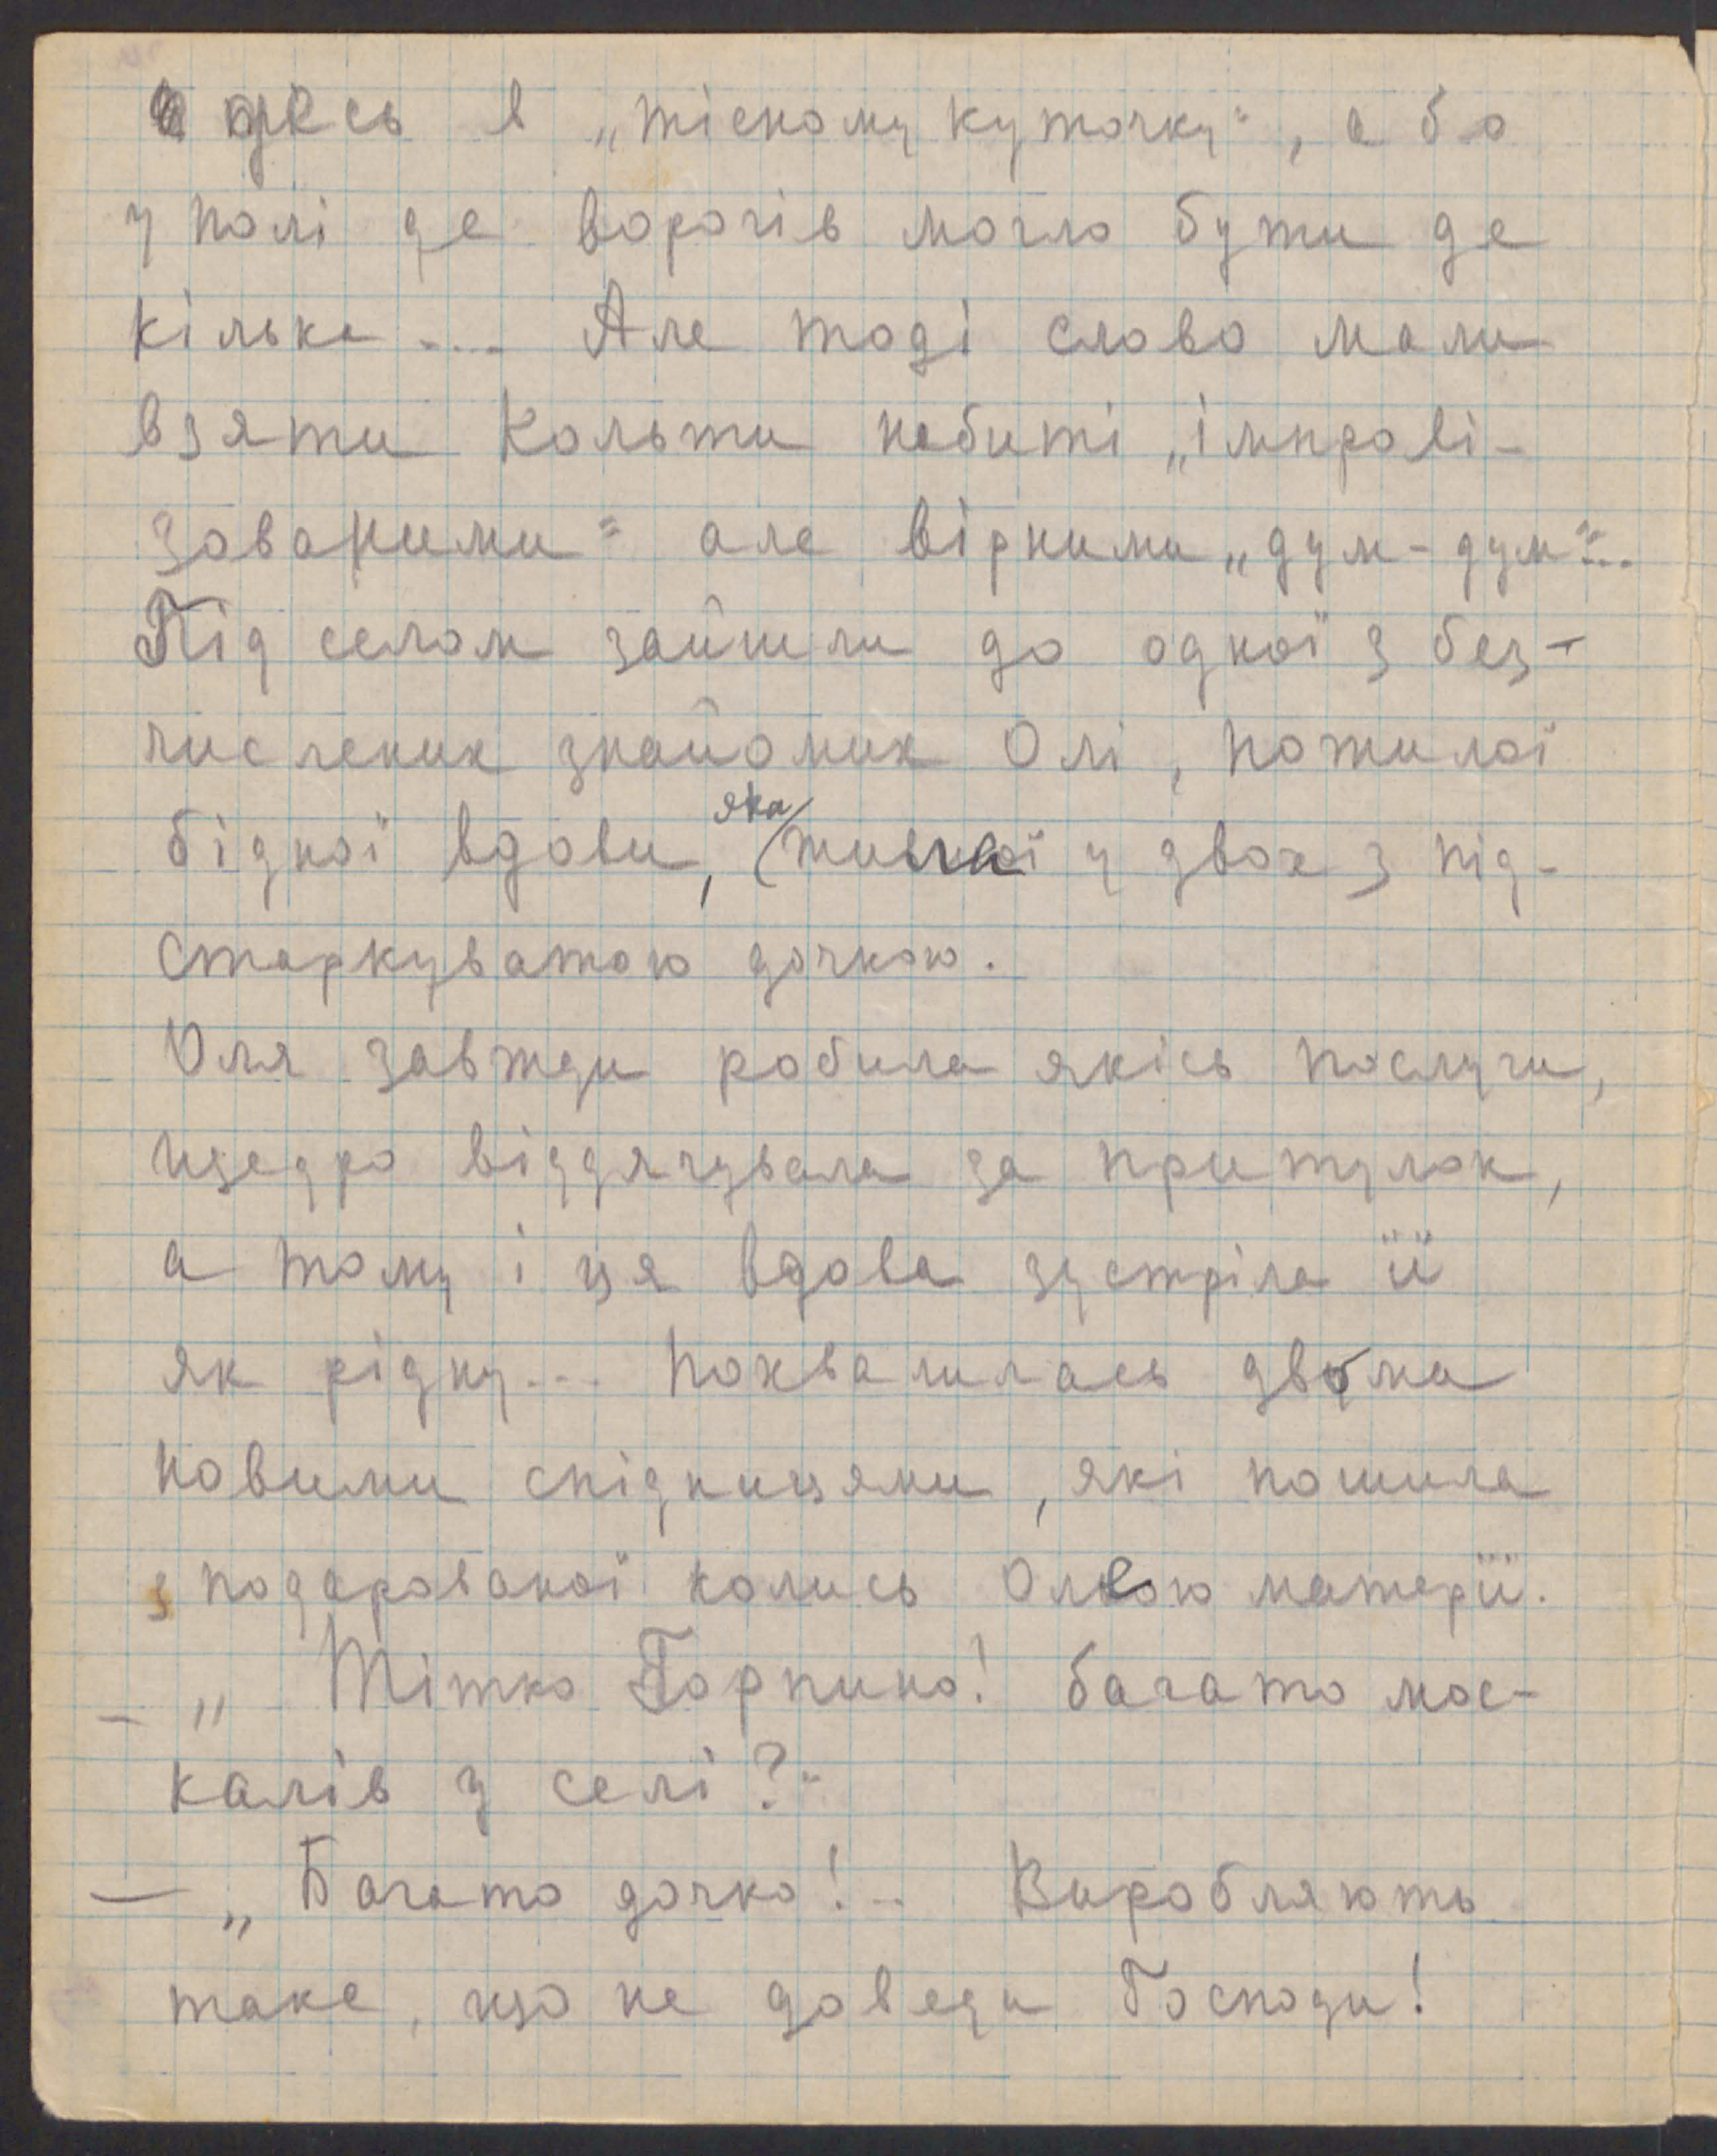 десь в „тісному куточку“, або
у полі де ворогів могло бути де
кілька .... Але тоді слово мали
взяти Кольти набиті „імпрові-
зованими“ але вірними „дум-дум“...
Під селом зайшли до одної з без-
численик знайомих Олі, пожилої
бідної вдови, яка жила у двох з під-
старкуватою дочкою.
Оля завжди робила якісь послуги,
щедро віддячувала за притулок,
а тому і ця вдова зустріла її
як рідну... Похвалилась двома
новими спідницями, які пошила
з подарованої колись Олею матерії.
– „Тітко Горпино! багато мос-
калів у селі?“
– „Багато дочко!.. Виробляють
таке, що не доведи Господи!